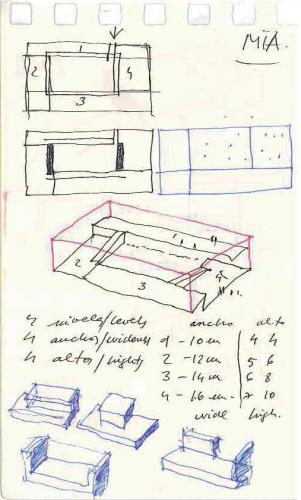 MIA.
1
2 4
3
2 3 4
4 nivels/levels ancho alto
4 anchos/widness 1 - 10 cm 4 4
4 altos/hights 2 - 12 cm 5 6
3 - 14 cm 6 8
4 - 16 cm - 7 10
wide high.